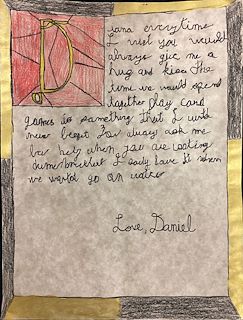 Dana everytime
I visit you would
always give me a
hug and kiss the
time we would spend
together play card
games is something that I will
never forget You always ask me
for help when you are cooking
I love it when
we would go on walks
Love, Daniel